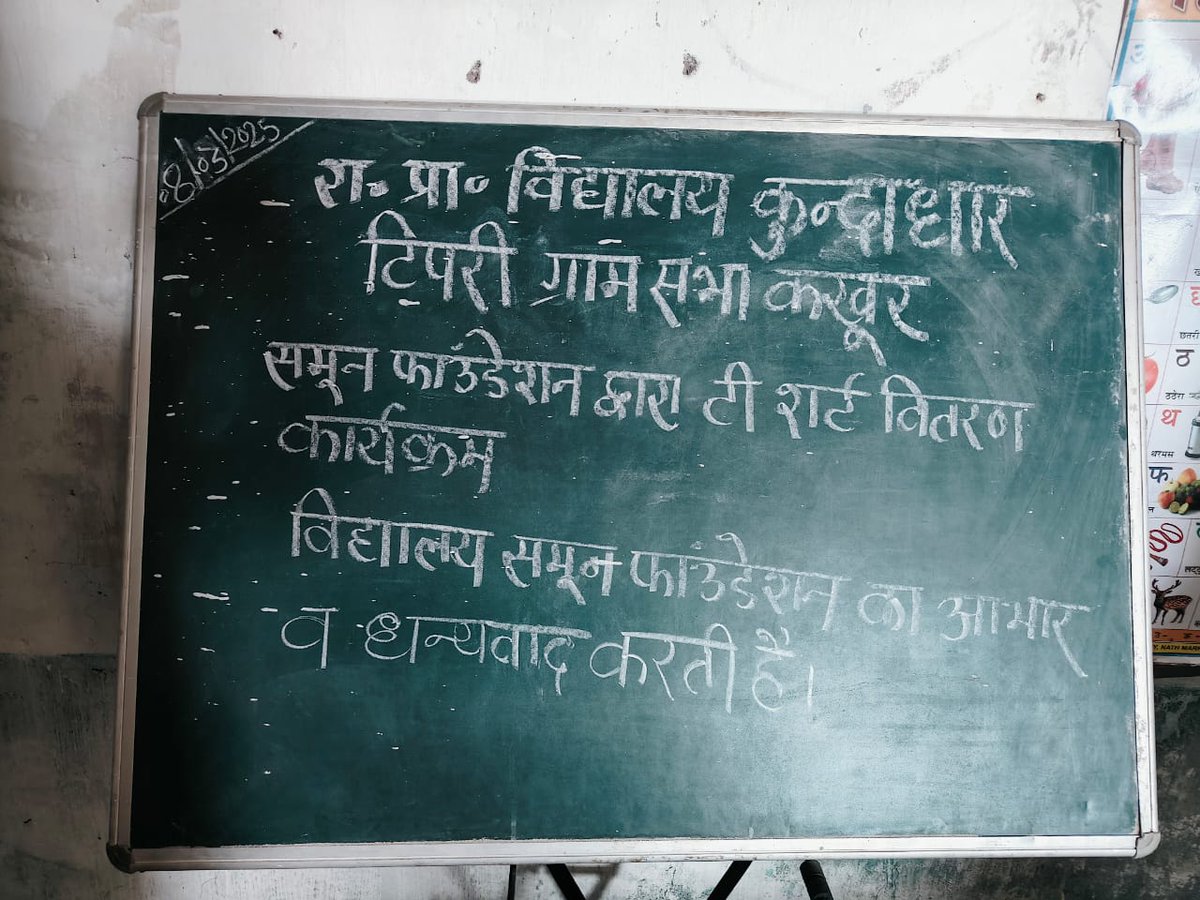 08/03/2025
रा० प्रा० विद्यालय कुन्दाधार
टिपरी ग्राम सभा कखूर
समून फाउंडेशन द्वारा टी शर्ट वितरण
कार्यक्रम
विद्यालय समून फाउंडेशन का आभार
व धन्यवाद करती है।
छतरी
ठ
ठठेरा
थ
थरमस
फ